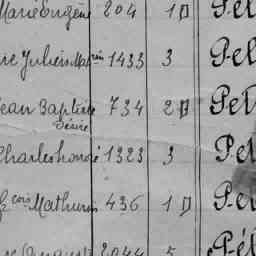 Marie Eugène 204 1 D Pel
re Julien Mat 1433 3 Pel
Jean Baptiste Désiré 734 2 D Pel
Charles honoré 1323 3 Pel
fcois Mathurin 436 1 D Pel
2044 5 Pél